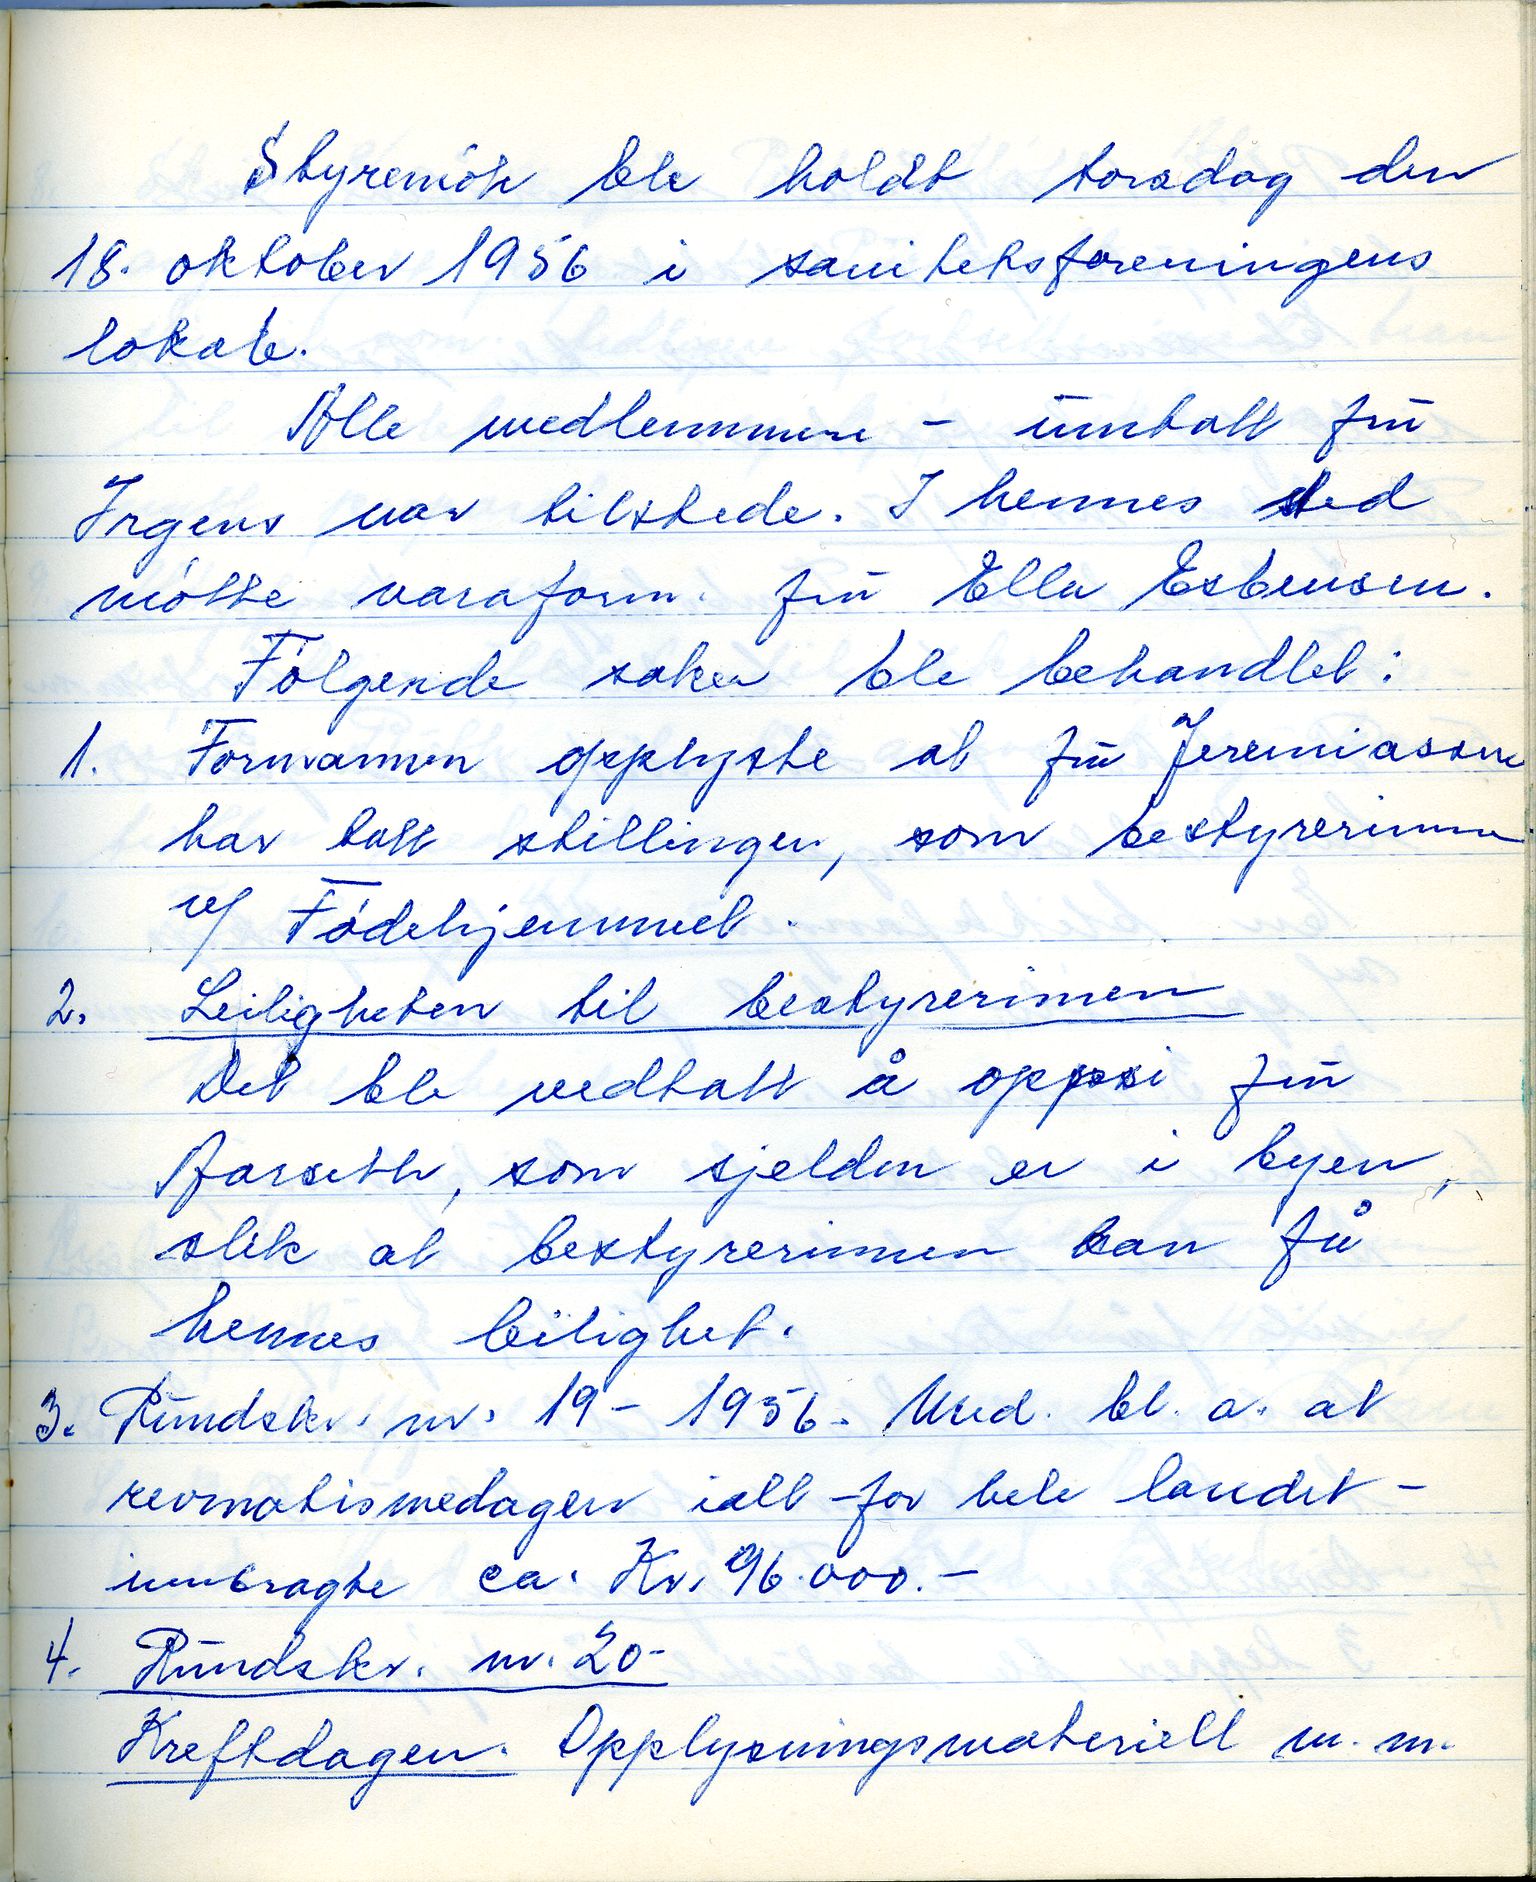 Styremöte ble holdt torsdag den
18. oktober 1956 i sanitetsforeningens
lokale.
Alle medlemmene - unntatt fru
Irgens var tilstede. I hennes sted
møtte varaform. fru Ella Esbensen.
Følgende saker ble behandlet:
1. Formannen opplyste at fru Jeremiassen
har tatt stillingen, som bestyrerinne
v/ Fødehjemmet.
2. Leiligheten til bestyrerinnen
Det ble vedtatt å oppsi fru
Aarseth, som sjelden er i byen,
slik at bestyrerinnen kan få
hennes leilighet.
3. Rundskr. nr. 19 - 1956. Med. bl. a. at
revmatismedagen ialt - for hele landet -
innbragte ca. Kr. 96.000.-
4. Rundskr. nr. 20-
Kreftdagen. Opplysningsmateriell m. m.